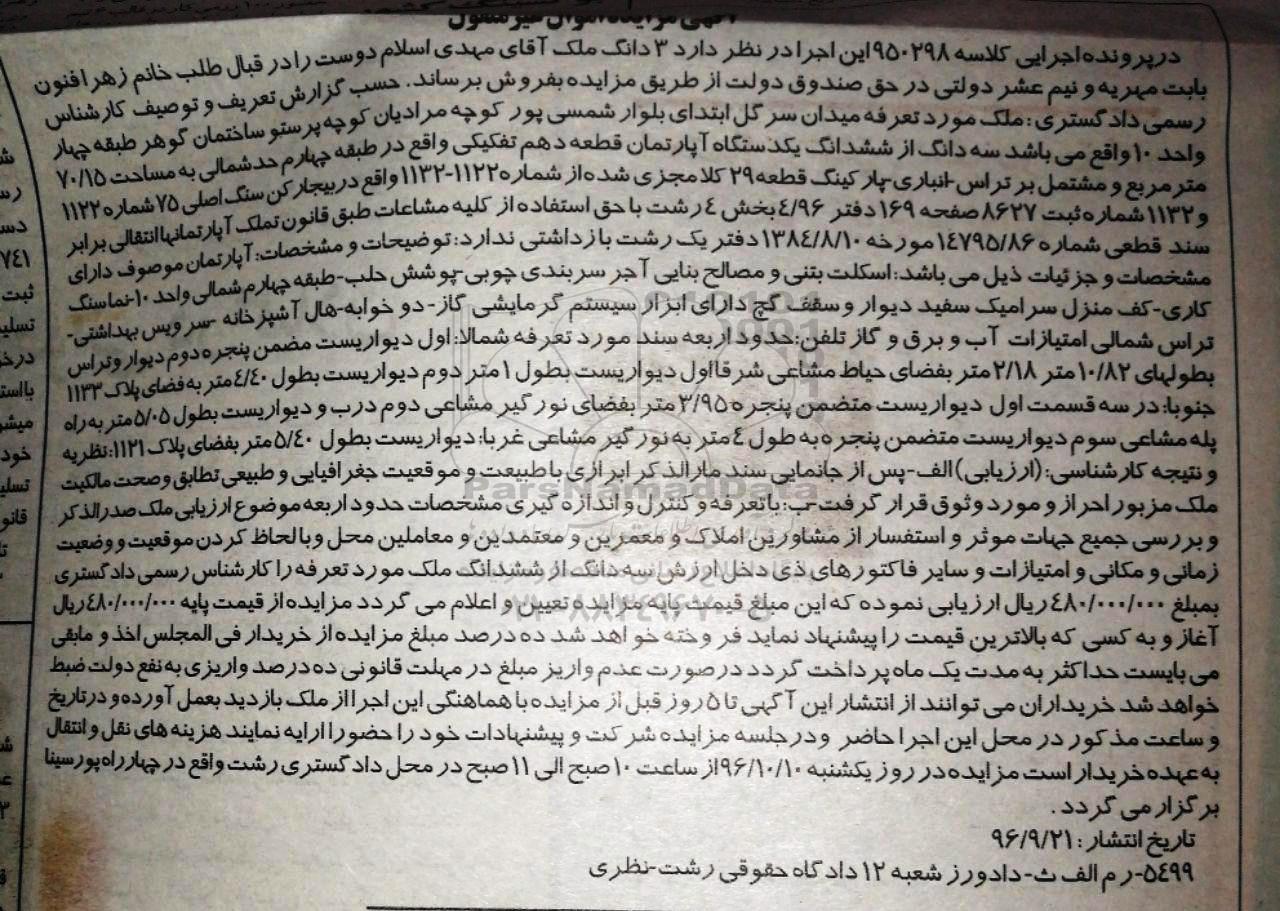 آگهی مزایده اموال غیر منقول
در پرونده اجرایی کلاسه ۹۵۰۲۹۸ این اجرا در نظر دارد ۳ دانگ ملک آقای مهدی اسلام دوست را در قبال طلب خانم زهرا فنون
بابت مهریه و نیم عشر دولتی در حق صندوق دولت از طریق مزایده بفروش برساند. حسب گزارش تعریف و توصیف کارشناس
رسمی دادگستری: ملک مورد تعرفه میدان سرگل ابتدای بلوار شمسی پور کوچه مرادیان کوچه پرستو ساختمان گوهر طبقه چهار
واحد ۱۰ واقع می باشد سه دانگ از ششدانگ یکدستگاه آپارتمان قطعه دهم تفکیکی واقع در طبقه چهارم حد شمالی به مساحت ۷۰/۱۵
متر مربع و مشتمل بر تراس-انباری-پارکینگ قطعه ۲۹ کلا مجزی شده از شماره ۱۱۲۲-۱۱۳۲ واقع در بیجارکن سنگ اصلی ۷۵ شماره ۱۱۲۲
و ۱۱۳۲ شماره ثبت ۸۶۲۷ صفحه ۱۶۹ دفتر ۴/۹۶ بخش ۴ رشت با حق استفاده از کلیه مشاعات طبق قانون تملک آپارتمانها انتقالی برابر
سند قطعی شماره ۱۴۷۹۵/۸۶ مورخه ۱۳۸۴/۸/۱۰ دفتر یک رشت بازداشتی ندارد: توضیحات و مشخصات: آپارتمان موصوف دارای
مشخصات و جزئیات ذیل می باشد: اسکلت بتنی و مصالح بنایی آجر سربندی چوبی-پوشش حلب-طبقه چهارم شمالی واحد ۱۰-نما سنگ
کاری-کف منزل سرامیک سفید دیوار و سقف گچ دارای ابزار سیستم گرمایشی گاز- دو خوابه-هال آشپزخانه -سرویس بهداشتی-
تراس شمالی امتیازات آب و برق و گاز تلفن: حدود اربعه سند مورد تعرفه شمالا: اول دیواریست مضمن پنجره دوم دیوار و تراس
بطولهای ۱۰/۸۲ متر ۲/۱۸ متر بفضای حیاط مشاعی شرقا اول دیواریست بطول ۱ متر دوم دیواریست بطول ۴/۴۰ متر به فضای پلاک ۱۱۳۳
جنوبا: در سه قسمت اول دیواریست متضمن پنجره ۳/۹۵ متر بفضای نورگیر مشاعی دوم درب و دیواریست بطول ۵/۰۵ متر به راه
پله مشاعی سوم دیواریست متضمن پنجره به طول ۴ متر به نورگیر مشاعی غربا: دیواریست بطول ۵/۴۰ متر بفضای پلاک ۱۱۲۱: نظریه
و نتیجه کارشناسی: (ارزیابی) الف-پس از جانمایی سند مارالذکر ابرازی با طبیعت و موقعیت جغرافیایی و طبیعی تطابق و صحت مالکیت
ملک مزبور احراز و مورد وثوق قرار گرفت-ب: با تعرفه و کنترل و اندازه گیری مشخصات حدود اربعه موضوع ارزیابی ملک صدرالذکر
و بررسی جمیع جهات موثر و استفسار از مشاورین املاک و معمرین و معتمدین و معاملین محل و با لحاظ کردن موقعیت و وضعیت
زمانی و مکانی و امتیازات و سایر فاکتورهای ذی دخل ارزش سه دانگ از ششدانگ ملک مورد تعرفه را کارشناس رسمی دادگستری
بمبلغ ۴۸۰/۰۰۰/۰۰۰ ریال ارزیابی نموده که این مبلغ قیمت پایه مزایده تعیین و اعلام می گردد مزایده از قیمت پایه ۴۸۰/۰۰۰/۰۰۰ ریال
آغاز و به کسی که بالاترین قیمت را پیشنهاد نماید فروخته خواهد شد ده درصد مبلغ مزایده از خریدار فی المجلس اخذ و مابقی
می بایست حداکثر به مدت یک ماه پرداخت گردد در صورت عدم واریز مبلغ در مهلت قانونی ده درصد واریزی به نفع دولت ضبط
خواهد شد خریداران می توانند از انتشار این آگهی تا ۵ روز قبل از مزایده با هماهنگی این اجرا از ملک بازدید بعمل آورده و در تاریخ
و ساعت مذکور در محل این اجرا حاضر و در جلسه مزایده شرکت و پیشنهادات خود را حضورا ارایه نمایند هزینه های نقل و انتقال
به عهده خریدار است مزایده در روز یکشنبه ۹۶/۱۰/۱۰ از ساعت ۱۰ صبح الی ۱۱ صبح در محل دادگستری رشت واقع در چهارراه پورسینا
برگزار می گردد.
تاریخ انتشار: ۹۶/۹/۲۱
۵۴۹۹-رم الف ث- دادورز شعبه ۱۲ دادگاه حقوقی رشت-نظری
ParsNamadData